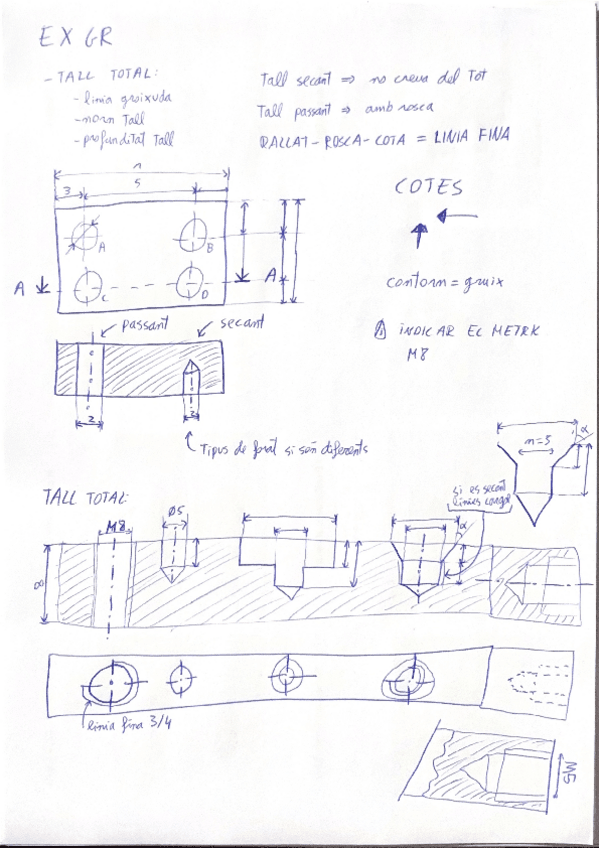 EX GR
- TALL TOTAL:
- linia groixuda
- nom Tall
- profunditat Tall
Tall secant => no creua del Tot
Tall passant => amb rosca
RALLAT - ROSCA - COTA = LINIA FINA
3
5
COTES
A
B
A
A
C
D
contorn = gruix
INDICAR EL METRIK
M8
passant
secant
2
2
Tipus de forat si són diferents
n=5
α
TALL TOTAL:
M8
Ø5
si es secant
linies
α
8
linia fina 3/4
M5